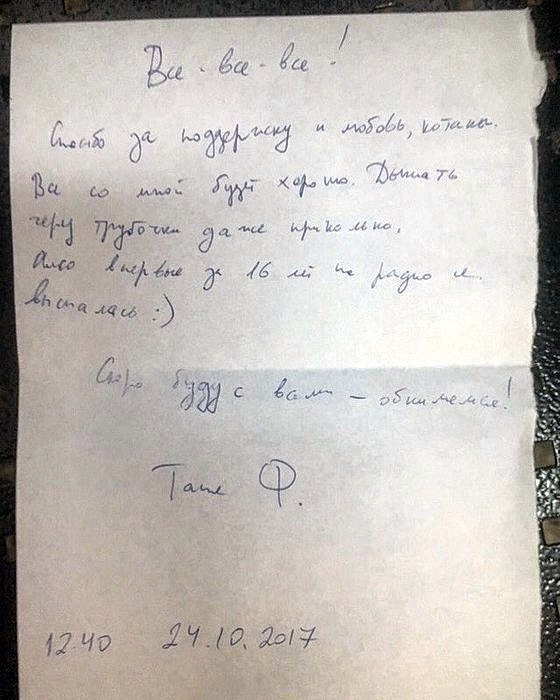 Все-все-все!
Спасибо за поддержку и любовь, котаны.
Вс со мной будет хорошо. Дышать
через трубочки даже прикольно.
Алсо впервые за 16 лет на радио я
выспалась :)
Скоро буду с вами – обнимемся!
Таня Ф.
12.40 24.10.2017